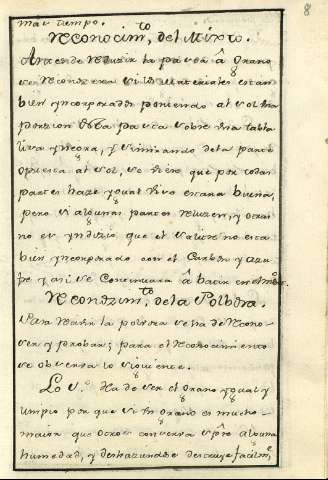 mas tiempo.
8
Reconocim,to del Mixto.
Antes de Reduzir la pasta â Grano
se Reconozera si los Materiales estan
bien yncorporados poniendo al sol una
porzion de la pasta sobre una tabla
lisa y negra, y mirando de la parte
opuesta al sol, se viere, que por todas
partes haze ygual viso estarâ buena,
pero si algunas partes reluzen, y otras
no es yndizio que el salitre no esta
bien yncorporado con el Carbon y azu
fre y asi se Continuara â batir en el mort.
Reconozim,to de la Polbora.
Para Reziuir la polvora se ha de Recono-
ser y probar; para el Reconocimiento
se observa lo siguiente.
Lo 1.o Ha de ser el grano ygual y
limpio por que si el grano es mucho
maior que otros conserva s,pre alguna
humedad, y deshaziendose des caeze facilm,te